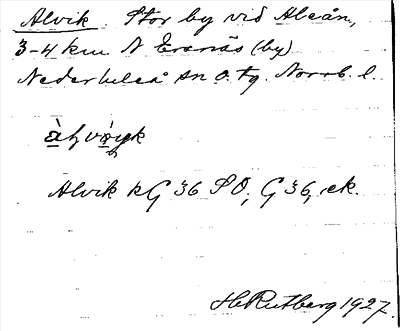 Alvik. Stor by vid Aleån,
3-4 km N Ersnäs (by)
Nederluleå sn Ö. tg. Norrb. l.
Alvik kG 36 SO, G 36, ek.
H. Rutberg 1927.